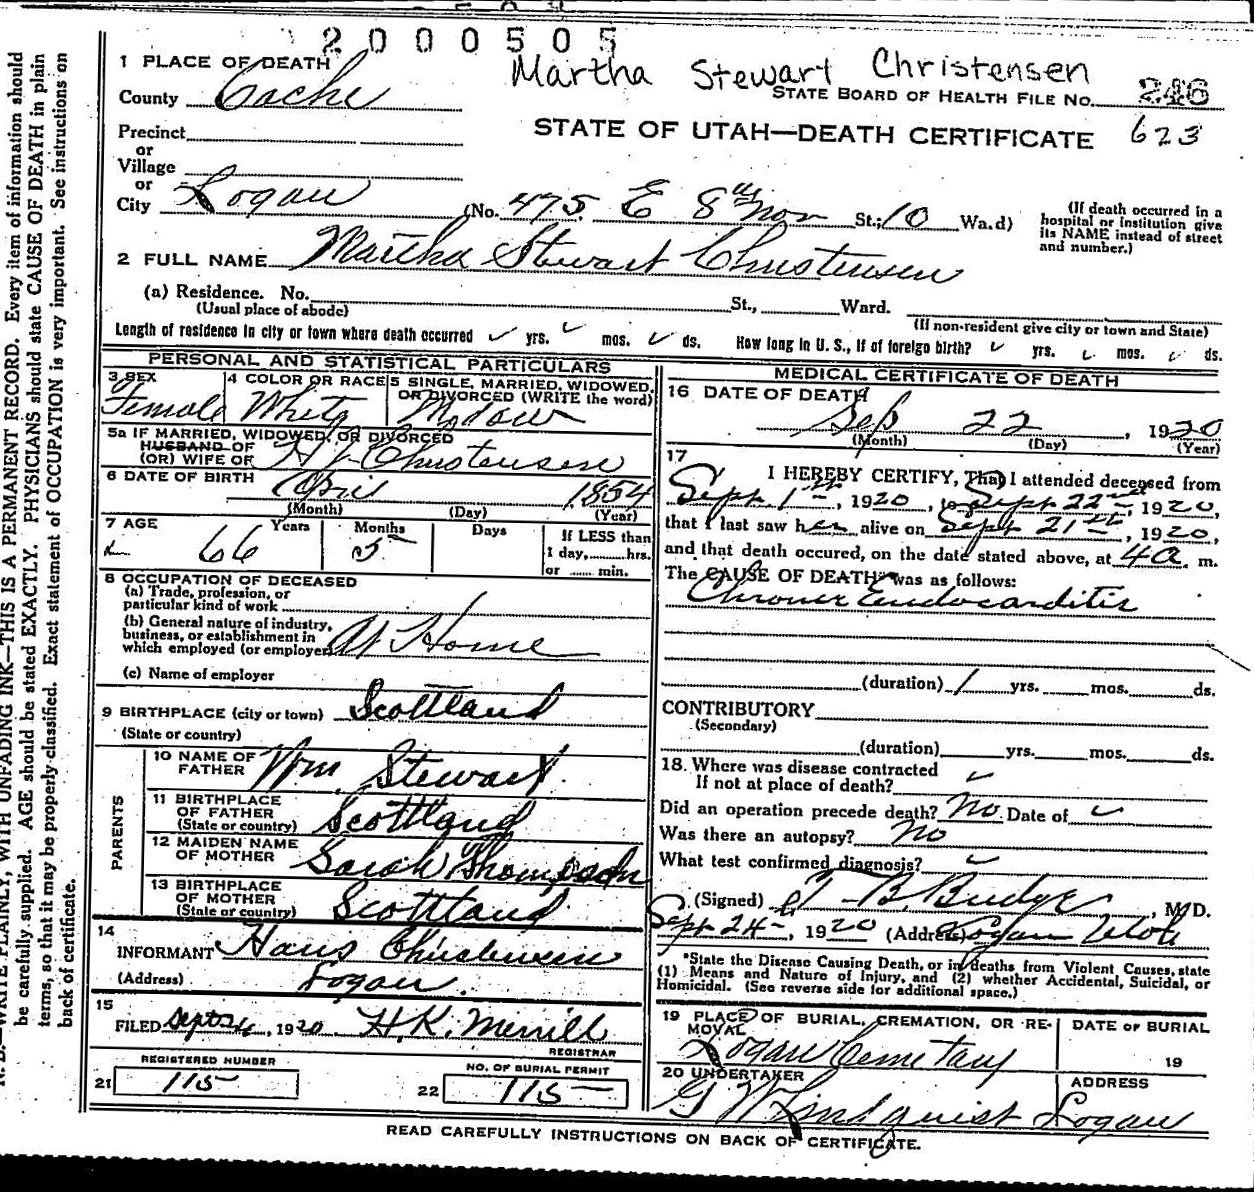 2000505
Martha Stewart Christensen
1 PLACE OF DEATH
County Cache
STATE BOARD OF HEALTH FILE NO. 246
STATE OF UTAH—DEATH CERTIFICATE 623
Precinct
or
Village
or
City Logan (No. 475 E 8th Nor St.; 10 Wa.d)
(If death occurred in a
hospital or institution give
its NAME instead of street
and number.)
2 FULL NAME Martha Stewart Christensen
(a) Residence. No. St., Ward.
(Usual place of abode) (If non-resident give city or town and State)
Length of residence in city or town where death occurred yrs. mos. ds. How long in U. S., if of foreign birth? yrs. mos. ds.
PERSONAL AND STATISTICAL PARTICULARS
3 SEX 4 COLOR OR RACE 5 SINGLE, MARRIED, WIDOWED,
OR DIVORCED (WRITE the word)
Female White Widow
5a IF MARRIED, WIDOWED, OR DIVORCED
HUSBAND OF
(OR) WIFE OF H J Christensen
6 DATE OF BIRTH April 1854
(Month) (Day) (Year)
7 AGE Years Months Days If LESS than
66 5 1 day, hrs.
or min.
8 OCCUPATION OF DECEASED
(a) Trade, profession, or
particular kind of work
(b) General nature of industry,
business, or establishment in
which employed (or employer) At Home
(c) Name of employer
9 BIRTHPLACE (city or town) Scottland
(State or country)
PARENTS
10 NAME OF
FATHER Wm Stewart
11 BIRTHPLACE
OF FATHER
(State or country) Scottland
12 MAIDEN NAME
OF MOTHER Sarah Thompson
13 BIRTHPLACE
OF MOTHER
(State or country) Scottland
14
INFORMANT Hans Christensen
(Address) Logan.
15
FILED Sept 1920 H.K. Merrill
REGISTRAR
REGISTERED NUMBER
21 115
NO. OF BURIAL PERMIT
22 115
MEDICAL CERTIFICATE OF DEATH
16 DATE OF DEATH
Sep 22, 1920
(Month) (Day) (Year)
17
I HEREBY CERTIFY, That I attended deceased from
Sept. 1st, 1920, to Sept 22nd 1920,
that I last saw her alive on Sept 21st, 1920,
and that death occured, on the date stated above, at 4 a. m.
The CAUSE OF DEATH* was as follows:
Chronic Endocarditis
(duration) 1 yrs. mos. ds.
CONTRIBUTORY
(Secondary)
(duration) yrs. mos. ds.
18. Where was disease contracted
If not at place of death?
Did an operation precede death? No Date of
Was there an autopsy? No
What test confirmed diagnosis?
(Signed) T B. Budge, M.D.
Sept 24, 1920 (Address) Logan Utah
*State the Disease Causing Death, or in deaths from Violent Causes, state
(1) Means and Nature of Injury, and (2) whether Accidental, Suicidal, or
Homicidal. (See reverse side for additional space.)
19 PLACE OF BURIAL, CREMATION, OR RE- DATE OF BURIAL
MOVAL
Logan Cemetary 19
20 UNDERTAKER ADDRESS
G W Lindquist Logan
READ CAREFULLY INSTRUCTIONS ON BACK OF CERTIFICATE.
WRITE PLAINLY, WITH UNFADING INK—THIS IS A PERMANENT RECORD. Every item of information should
be carefully supplied. AGE should be stated EXACTLY. PHYSICIANS should state CAUSE OF DEATH in plain
terms, so that it may be properly classified. Exact statement of OCCUPATION is very important. See instructions on
back of certificate.